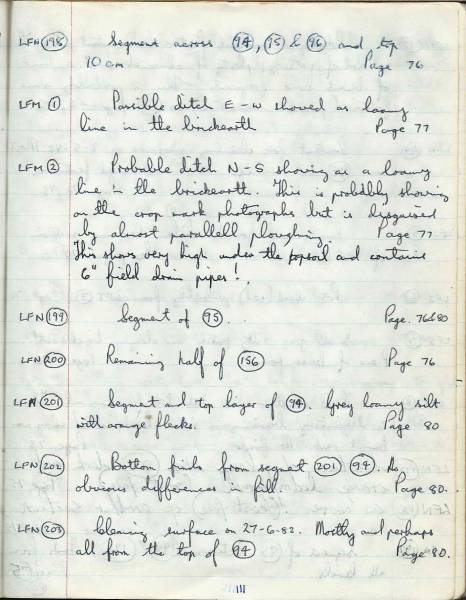 LFN (198) Segment across (94), (95) & (96) and top
10cm Page 76
LFM (1) Possible ditch E-W showed as loamy
line in the brickearth Page 77
LFM (2) Probable ditch N-S showing as a loamy
line in the brickearth. This is probably showing
on the crop mark photographs but is disguised
by almost parallell ploughing. Page 77
This shows very high under the topsoil and contains
6" field drain pipes!
LFN (199) Segment of (95). Page. 76&80
LFN (200) Remaining half of (156) Page 76
LFN (201) Segment and top layer of (94). Grey loamy silt
with orange flecks. Page 80
LFN (202) Bottom finds from segment (201) (94). No
obvious differences in fill. Page 80.
LFN (203) Cleaning surface on 27-6-82. Mostly and perhaps
all from the top of (94) Page 80.